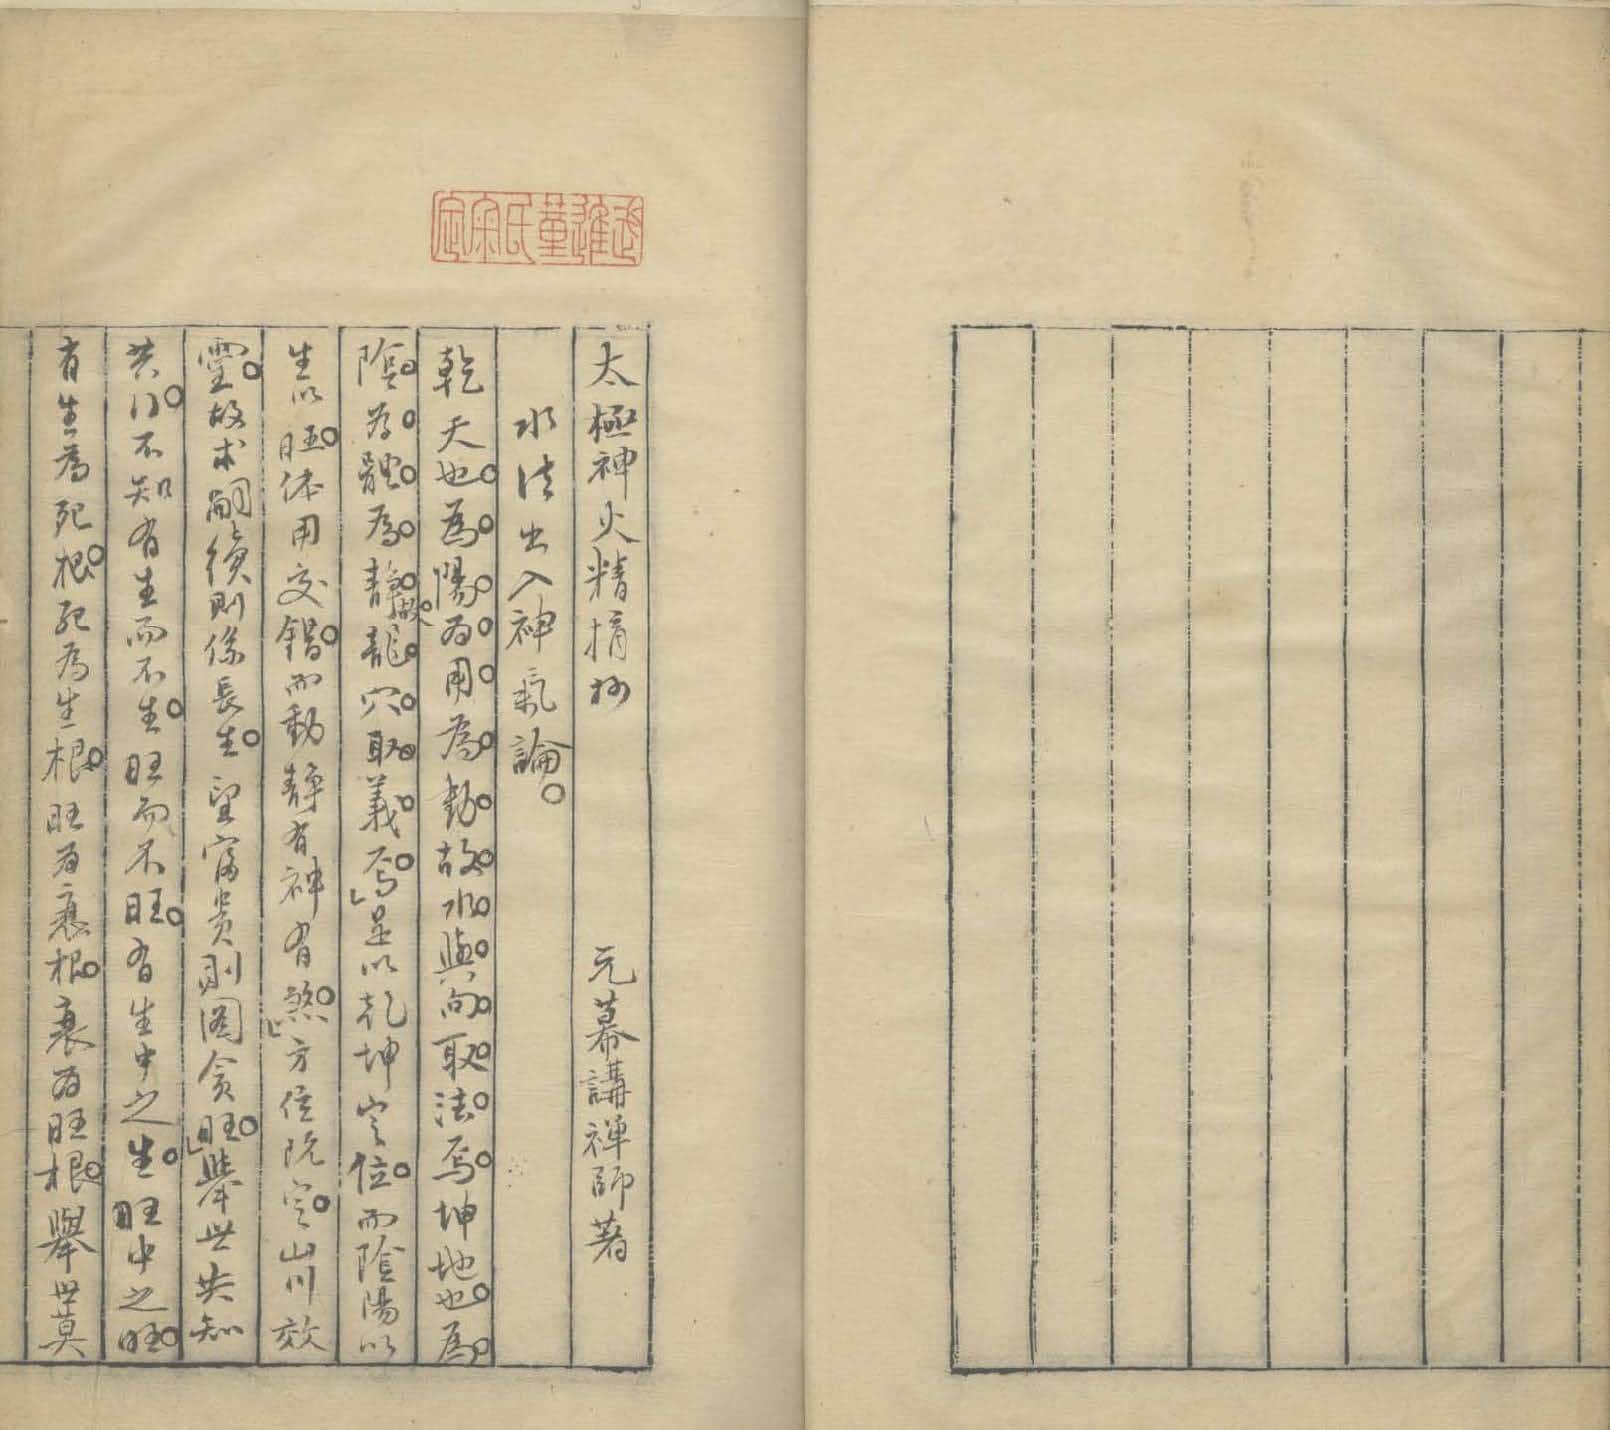 武進董氏宋定
太極神火精摘抄　元幕講禪師著
水法出入神氣論
乾天也為陽為用為動故水與向取法焉坤地也為
陰為體為靜故龍穴取義焉是以乾坤定位而陰陽以
生以旺体用交錯而動静有神有煞方位既定山川效
靈故求嗣續則係長生望富貴則圖貪旺舉世共知
共行不知有生而不生旺而不旺有生中之生旺中之旺
有生為死根死為生根旺為衰根衰為旺根舉世莫